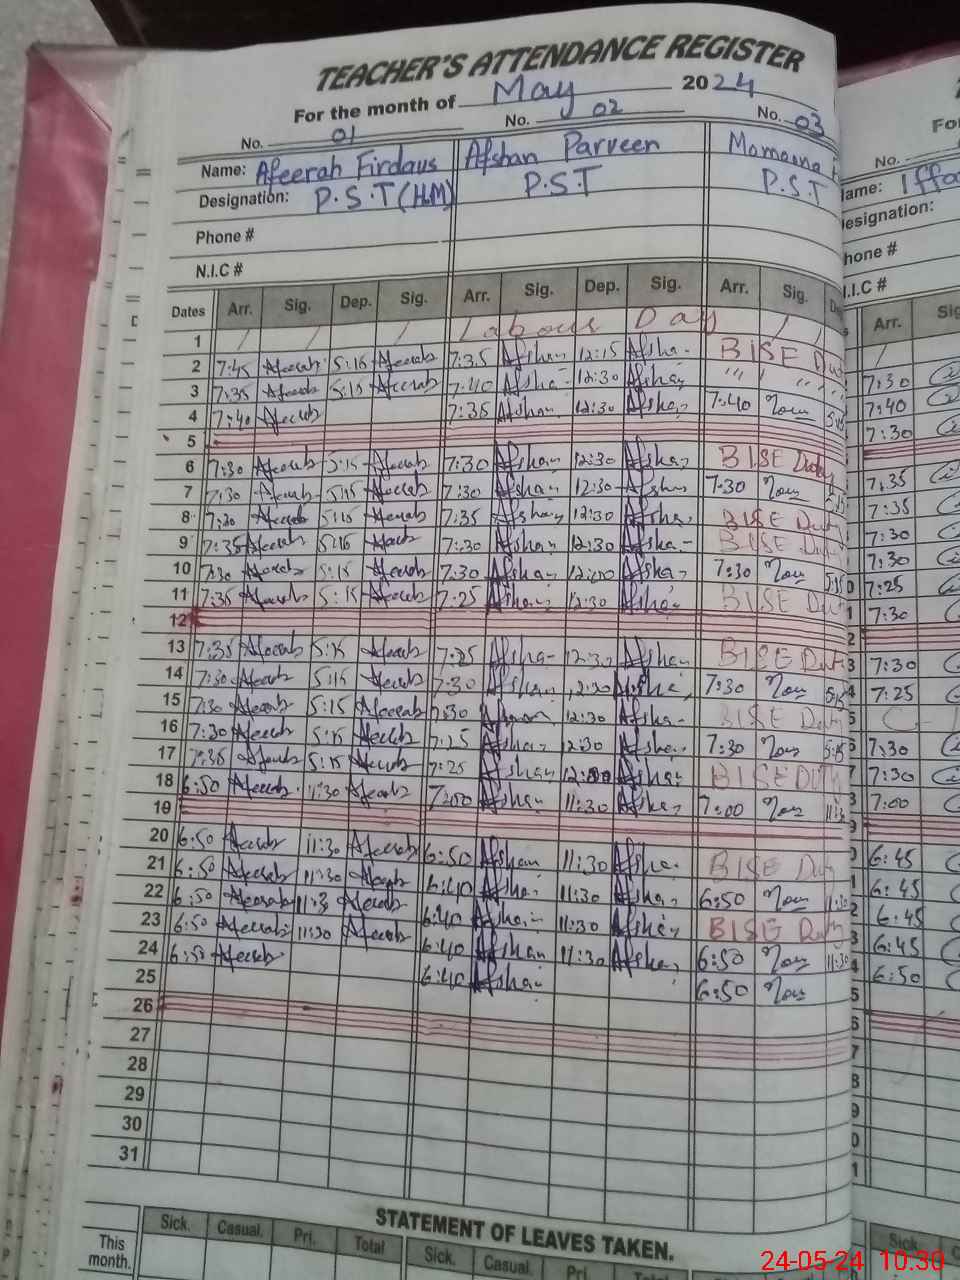 TEACHER'S ATTENDANCE REGISTER
For the month of May 2024
No. 01 No. 02 No. 03 No.
Name: Afeerah Firdaus Afshan Parveen Momoona
Designation: P.S.T (H.M) P.S.T P.S.T
Phone #
N.I.C #
Dates Arr. Sig. Dep. Sig. Arr. Sig. Dep. Sig. Arr. Sig. Arr.
1 Labour Day
2 7:45 Afeerah 5:15 Afeerah 7:35 Afshan 12:15 Afshan BISE Duty
3 7:35 Afeerah 5:15 Afeerah 7:40 Afshan 12:30 Afshan " " 7:30
4 7:40 Afeerah 7:35 Afshan 12:30 Afshan 7:40 7:40
5 7:30
6 7:30 Afeerah 5:15 Afeerah 7:30 Afshan 12:30 Afshan BISE Duty
7 7:30 Afeerah 5:15 Afeerah 7:30 Afshan 12:30 Afshan 7:30 7:35
8 7:30 Afeerah 5:15 Afeerah 7:35 Afshan 12:30 Afshan BISE Duty 7:35
9 7:35 Afeerah 5:15 7:30 Afshan 12:30 Afshan BISE Duty 7:30
10 7:30 Afeerah 5:15 Afeerah 7:30 Afshan Afshan 7:30 7:30
11 7:35 Afeerah 5:15 Afeerah 7:25 Afshan 12:30 Afshan BISE Duty 7:25
12 7:30
13 7:35 Afeerah 5:15 Afeerah 7:25 Afshan 12:30 Afshan BISE Duty
14 7:30 Afeerah 5:15 Afeerah 7:30 Afshan 12:30 7:30 5:15 7:30
15 7:30 Afeerah 5:15 Afeerah 7:30 Afshan 12:30 Afshan BISE Duty 7:25
16 7:30 Afeerah 5:15 Afeerah 7:25 Afshan 12:30 Afshan 7:30 5:15
17 7:35 Afeerah 5:15 Afeerah 7:25 Afshan Afshan BISE DUTY 7:30
18 6:50 Afeerah 11:30 Afeerah 7:00 Afshan 11:30 Afshan 7:00 7:30
19 7:00
20 6:50 Afeerah 11:30 Afeerah 6:50 Afshan 11:30 Afshan BISE Duty
21 6:50 Afeerah 11:30 Afeerah 6:40 Afshan 11:30 Afshan 6:50 11:30 6:45
22 6:50 Afeerah 11:30 Afeerah 6:40 Afshan 11:30 Afshan BISE Duty 6:45
23 6:50 Afeerah 11:30 Afeerah 6:40 Afshan 11:30 Afshan 6:50 11:30 6:45
24 6:50 Afeerah 6:40 Afshan 6:50 6:45
25 6:50
26
27
28
29
30
31
STATEMENT OF LEAVES TAKEN.
This month. Sick. Casual. Pri. Total Sick. Casual. Pri. Total Sick.
24-05-24 10:30